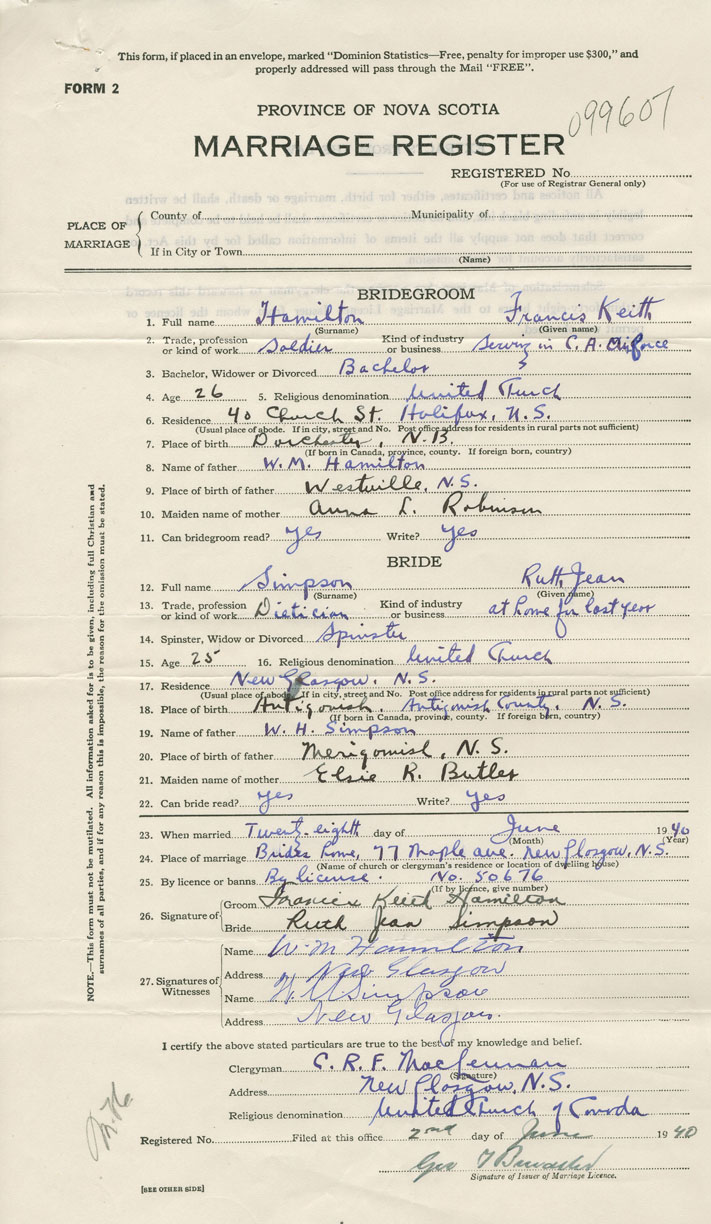 This form, if placed in an envelope, marked "Dominion Statistics—Free, penalty for improper use $300," and
properly addressed will pass through the Mail "FREE".
FORM 2
PROVINCE OF NOVA SCOTIA
099607
MARRIAGE REGISTER
REGISTERED No.
(For use of Registrar General only)
PLACE OF MARRIAGE
County of Municipality of
If in City or Town
(Name)
BRIDEGROOM
1. Full name Hamilton Francis Keith
(Surname) (Given name)
2. Trade, profession or kind of work Soldier Kind of industry or business Serving in C. A. Airforce
3. Bachelor, Widower or Divorced Bachelor
4. Age 26 5. Religious denomination United Church
6. Residence 40 Church St. Halifax, N.S.
(Usual place of abode. If in city, street and No. Post office address for residents in rural parts not sufficient)
7. Place of birth Dorchester, N.B.
(If born in Canada, province, county. If foreign born, country)
8. Name of father W. M. Hamilton
9. Place of birth of father Westville, N.S.
10. Maiden name of mother Anna L. Robinson
11. Can bridegroom read? yes Write? yes
BRIDE
12. Full name Simpson Ruth Jean
(Surname) (Given name)
13. Trade, profession or kind of work Dietician Kind of industry or business at home for last year
14. Spinster, Widow or Divorced Spinster
15. Age 25 16. Religious denomination United Church
17. Residence New Glasgow, N.S.
(Usual place of abode. If in city, street and No. Post office address for residents in rural parts not sufficient)
18. Place of birth Antigonish, Antigonish County, N.S.
(If born in Canada, province, county. If foreign born, country)
19. Name of father W. H. Simpson
20. Place of birth of father Merigomish, N.S.
21. Maiden name of mother Elsie R. Butler
22. Can bride read? yes Write? yes
23. When married Twenty-eighth day of June 1940
(Month) (Year)
24. Place of marriage Brides home, 77 Maple ave. New Glasgow, N.S.
(Name of church or clergyman's residence or location of dwelling house)
25. By licence or banns By license. No. 50676
(If by licence, give number)
26. Signature of
Groom Francis Keith Hamilton
Bride Ruth Jean Simpson
27. Signatures of Witnesses
Name W. M Hamilton
Address New Glasgow
Name W H Simpson
Address New Glasgow.
I certify the above stated particulars are true to the best of my knowledge and belief.
Clergyman C. R. F. MacLennan
(Signature)
Address New Glasgow, N.S.
Religious denomination United Church of Canada
Registered No. Filed at this office 2nd day of June 1940
Geo T
Signature of Issuer of Marriage Licence.
[SEE OTHER SIDE]
NOTE.—This form must not be mutilated. All information asked for is to be given, including full Christian and
surnames of all parties, and if for any reason this is impossible, the reason for the omission must be stated.